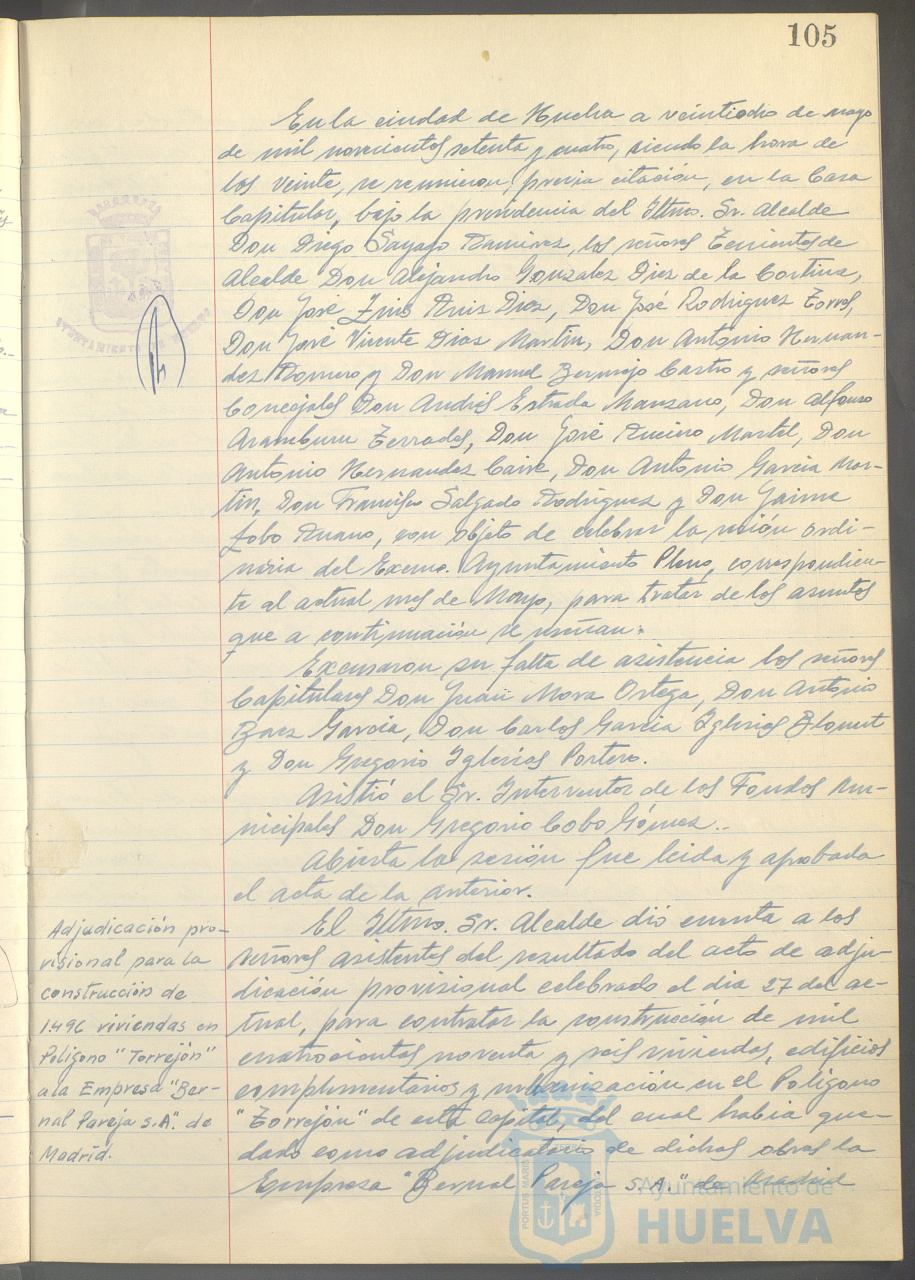 105
En la ciudad de Huelva a veintiocho de mayo
de mil novecientos setenta y cuatro, siendo la hora de
las veinte, se reunieron, previa citación, en la Casa
Capitular, bajo la presidencia del Iltmo. Sr. Alcalde
Don Diego Sayago Ramirez, los señores Tenientes de
Alcalde Don Alejandro Gonzalez Diez de la Cortina,
Don José Luis Ruiz Diaz, Don José Rodriguez Torres,
Don José Vicente Diaz Martin, Don Antonio Hernan-
dez Romero y Don Manuel Bermejo Castro y señores
Concejales Don Andrés Estrada Manzano, Don Alfonso
Aramburu Terrades, Don José Marti, Don
Antonio Hernandez Caire, Don Antonio Garcia Mar-
tin, Don Francisco Salgado Rodriguez y Don Jaime
Lobo Ruano, con objeto de celebrar la sesión ordi-
naria del Excmo. Ayuntamiento Pleno, correspondien-
te al actual mes de Mayo, para tratar de los asuntos
que a continuación se reseñan:
Excusaron su falta de asistencia los señores
Capitulares Don Juan Mora Ortega, Don Antonio
Baez Garcia, Don Carlos Garcia Iglesias
y Don Gregorio Iglesias Portero.
Asistió el Sr. Interventor de los Fondos Mu-
nicipales Don Gregorio Cobo Gómez.
Abierta la sesión fue leida y aprobada
el acta de la anterior.
Adjudicación pro-
visional para la
construcción de
1.496 viviendas en
Poligono "Torrejón"
a la Empresa "Ber-
nal Pareja S.A". de
Madrid.
El Iltmo. Sr. Alcalde dió cuenta a los
señores asistentes del resultado del acto de adju-
dicación provisional celebrado el dia 27 del ac-
tual, para contratar la construcción de mil
cuatrocientas noventa y seis viviendas, edificios
complementarios y urbanización en el Poligono
"Torrejón" de esta capital, del cual habia que-
dado como adjudicatario de dichas obras la
Empresa "Bernal Pareja S.A." de Madrid
AYUNTAMIENTO DE HUELVA
Ayuntamiento de
HUELVA